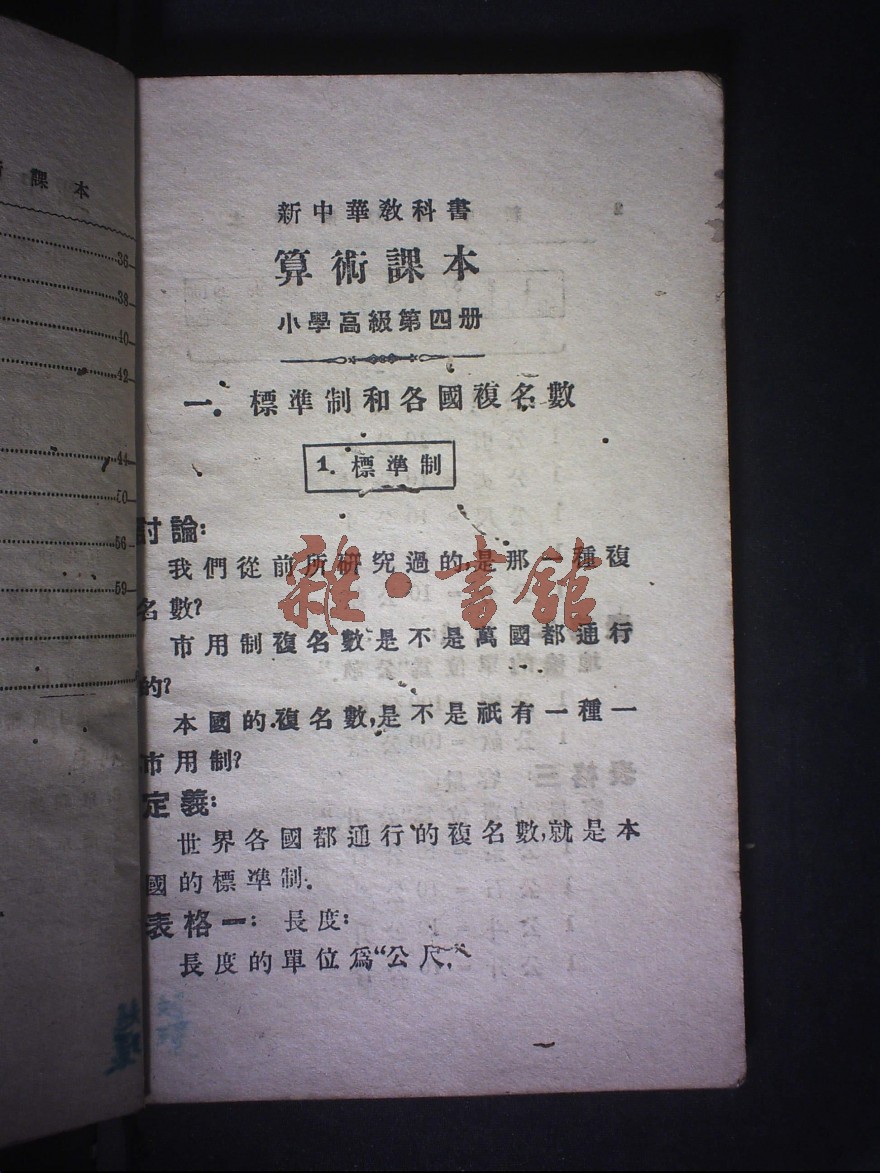 課本
36
38
40
42
44
50
56
59
新中華教科書
算術課本
小學高級第四册
一. 標準制和各國複名數
1. 標準制
討論:
我們從前所研究過的,是那一種複
名數?
市用制複名數是不是萬國都通行
的?
本國的複名數,是不是祇有一種—
市用制?
定義:
世界各國都通行的複名數,就是本
國的標準制.
表格一: 長度:
長度的單位爲“公尺”
雜·書館